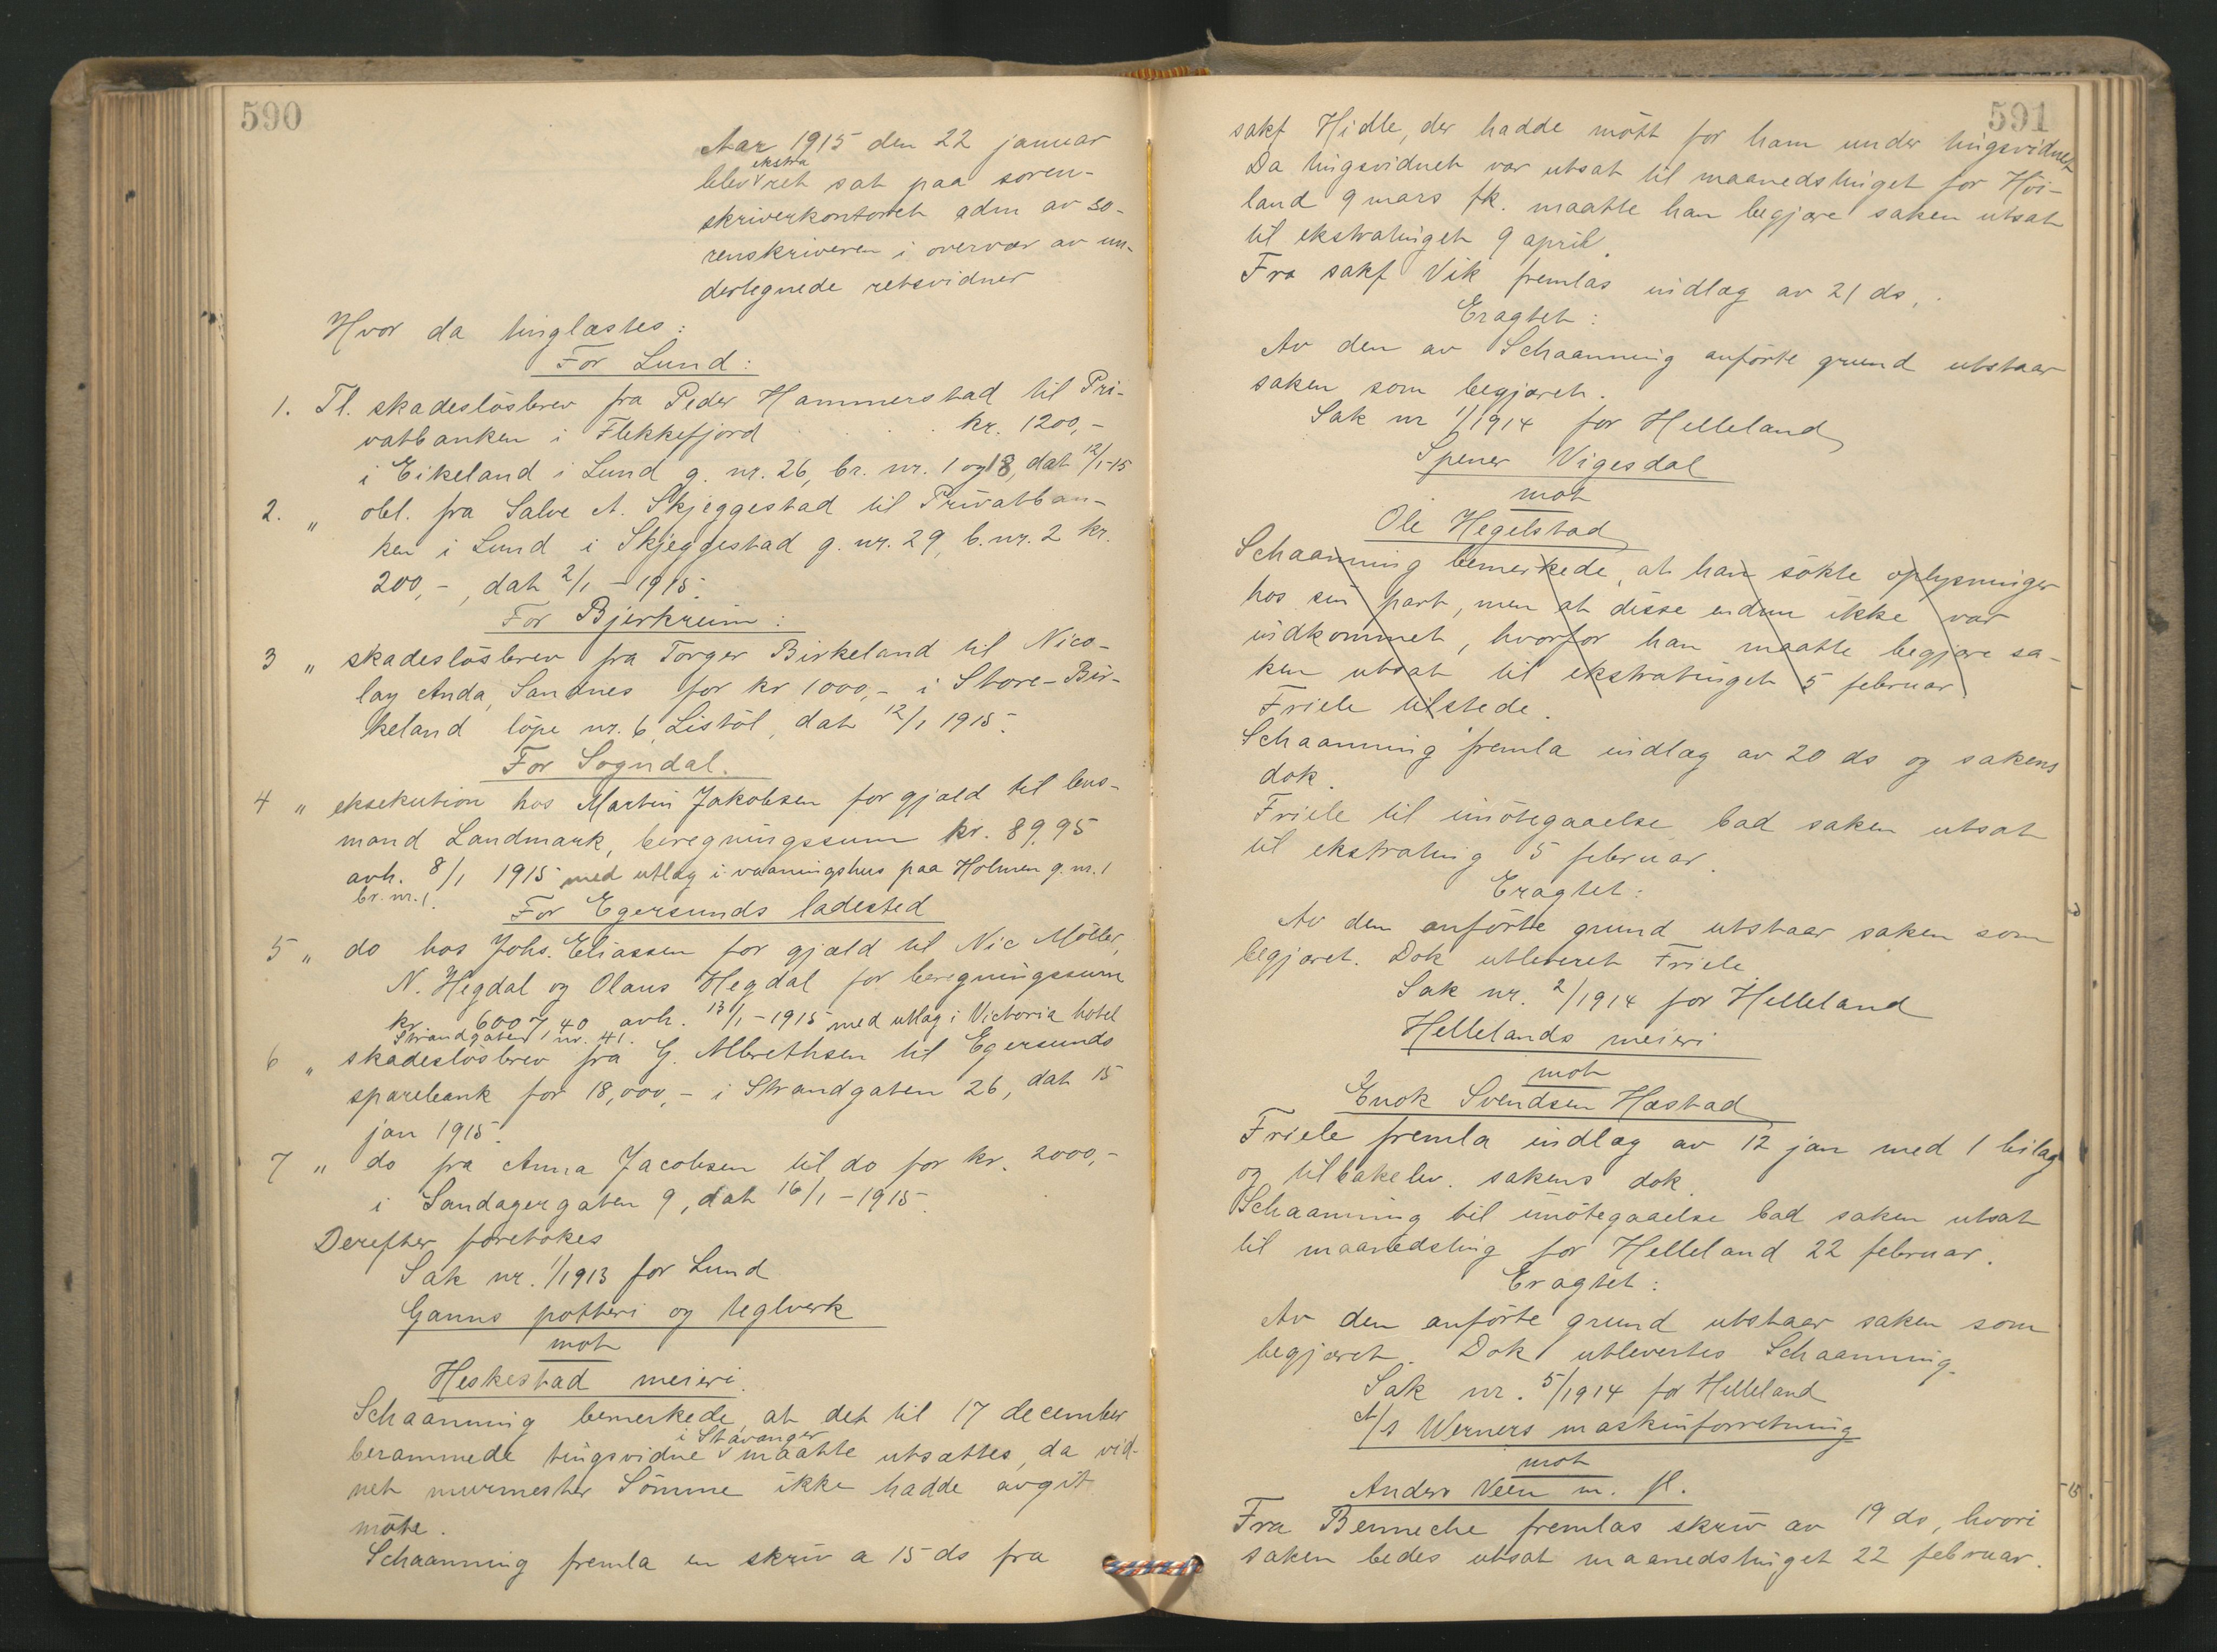 590
Aar 1915 den 22 januar
ekstra
blev ret sat paa soren-
skriverkontoret adm av so-
renskriveren i overvær av un-
dertegnede retsvidner
Hvor da tinglæstes:
For Lund:
1. Tl. skadeslösbrev fra Peder Hammerstad til Pri-
vatbanken i Flekkefjord . . . . kr. 1200,-
i Eikeland i Lund g. nr. 26, br. nr. 1 og 18, dat 12/1-15
2. " obl. fra Salve A. Skjeggestad til Privatban-
ken i Lund i Skjeggestad g. nr. 29, b. nr. 2 kr.
200,-, dat 2/1 - 1915.
For Bjerkreim:
3 " skadeslösbrev fra Torger Birkeland til Nico-
lay Anda, Sandnes for kr 1000,- i Store-Bir-
keland löpe nr. 6, Listöl, dat 12/1 1915.
For Sogndal.
4 " eksekution hos Martin Jakobsen for gjæld til lens-
mand Landmark, beregningssum kr. 89.95
avh. 8/1 1915 med utlæg i vaaningshus paa Holmen g. nr. 1
br. nr. 1.
For Egersunds ladested
5 " do hos Johs. Eliassen for gjæld til Nic Möller,
N. Hegdal og Olaus Hegdal for beregningssum
kr. 6007.40 avh. 13/1 - 1915 med utlæg i Victoria hotel
Strandgaten nr. 41.
6 " skadeslösbrev fra G. Albrethsen til Egersunds
sparebank for 18,000,- i Strandgaten 26, dat 15
jan 1915.
7 " do fra Anna Jacobsen til do for kr. 2000,-
i Sandagergaten 9, dat 16/1 - 1915.
Derefter foretokes
Sak nr. 1/1913 for Lund
Ganns potteri og teglverk
mot
Heskestad meieri.
Schaanning bemerkede, at det til 17 december
i Stavanger
berammede tingsvidne maatte utsættes, da vid-
net murmester Sömme ikke hadde avgit
möte.
Schaanning fremla en skriv a 15 ds fra
591
sakf Hidle, der hadde mött for ham under tingsvidnet
Da tingsvidnet var utsat til maanedstinget for Höi-
land 9 mars fk. maatte han begjære saken utsat
til ekstratinget 9 april.
Fra sakf Vik fremlas indlæg av 21 ds.
Eragtet:
Av den av Schaanning anförte grund utstaar
saken som begjæret.
Sak nr 1/1914 for Helleland
Spener Vigesdal
mot
Ole Hegelstad
Schaanning bemerkede, at han sökte oplysninger
hos sin part, men at disse endnu ikke var
indkommet, hvorfor han maatte begjære sa-
ken utsat til ekstratinget 5 februar.
Friele tilstede.
Schaanning fremla indlæg av 20 ds og sakens
dok.
Friele til imötegaaelse bad saken utsat
til ekstrating 5 februar.
Eragtet:
Av den anförte grund utstaar saken som
begjæret. Dok utleveret Friele.
Sak nr. 2/1914 for Helleland
Hellelands meieri
mot
Enok Svendsen Hæstad
Friele fremla indlæg av 12 jan med 1 bilag
og tilbakelev. sakens dok.
Schaanning til imötegaaelse bad saken utsat
til maanedsting for Helleland 22 februar.
Eragtet:
Av den anförte grund utstaar saken som
begjæret. Dok utlevertes Schaanning.
Sak nr. 5/1914 for Helleland
A/s Werners maskinforretning
mot
Anders Veen m. fl.
Fra Benneche fremlas skriv av 19 ds, hvori
saken bedes utsat maanedstinget 22 februar.